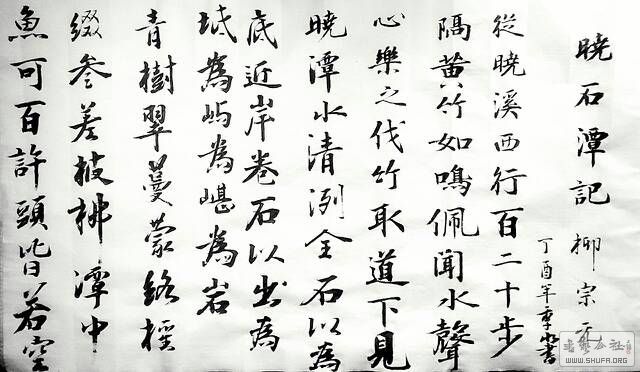 曉石潭記 柳宗元
丁酉年季書
從曉溪西行百二十步
隔黄竹如鳴佩聞水聲
心樂之伐竹取道下見
曉潭水清洌全石以為
底近岸卷石以出為
坻為嶼為嵁為岩
青樹翠蔓蒙絡摇
綴參差披拂潭中
魚可百許頭皆若空
WWW.SHUFA.ORG